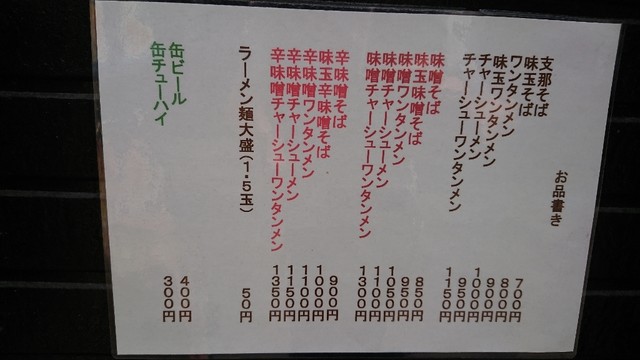 お品書き
支那そば 700円
味玉そば 800円
ワンタンメン 900円
味玉ワンタンメン 1000円
チャーシューメン 950円
チャーシューワンタンメン 1150円
味噌そば 850円
味玉味噌そば 950円
味噌ワンタンメン 1050円
味噌チャーシューメン 1100円
味噌チャーシューワンタンメン 1300円
辛味噌そば 900円
味玉辛味噌そば 1000円
辛味噌ワンタンメン 1100円
辛味噌チャーシューメン 1150円
辛味噌チャーシューワンタンメン 1350円
ラーメン麺大盛(1・5玉) 50円
缶ビール 400円
缶チューハイ 300円